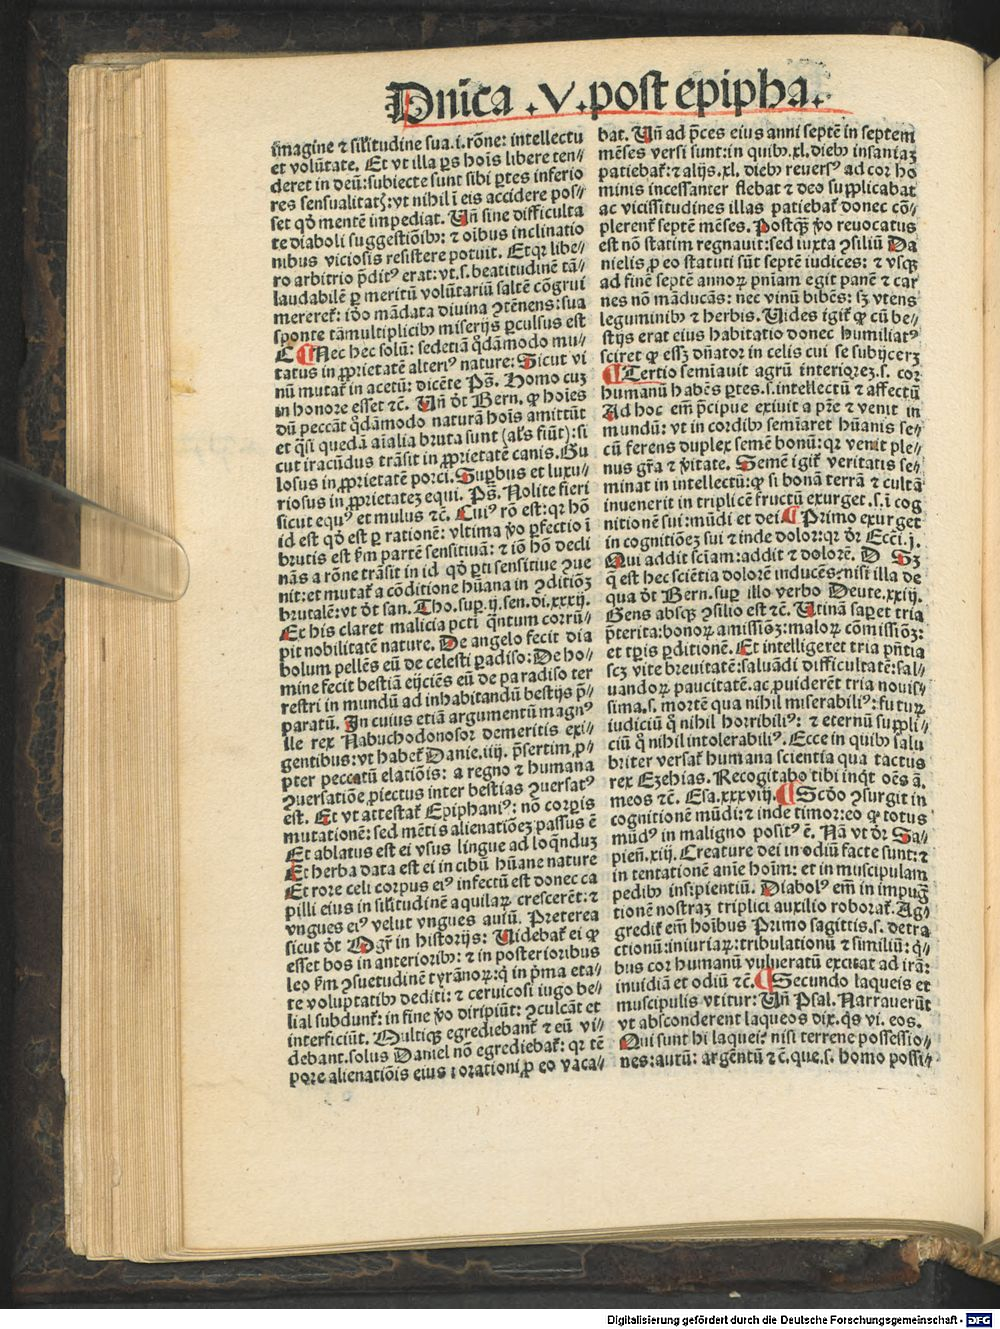 Dnica .V. post epipha.
imagine ⁊ silitudine sua .i. rõne: intellectu
et volũtate. Et vt illa ꝑs hoĩs libere ten⸗
deret in deũ: subiecte sunt sibi ꝑtes inferio
res sensualitatꝭ: vt nihil ĩ eis accidere pos⸗
set qđ mentẽ impediat. Uñ sine difficulta
te diaboli suggestiõibꝰ: ⁊ oĩbus inclinatio
nibus viciosis resistere potuit. Etqꝛ libe⸗
ro arbitrio p̃ditꝰ erat: vt .s. beatitudinẽ tã⸗
laudabilẽ ꝑ meritũ volũtariũ saltẽ cõgrui
mereret᷑: iđo mãdata diuina ꝯtẽnens: sua
sponte tãmultiplicibꝰ miserijs ꝑculsus est
C ¶ Nec hec solũ: sedetiã q̃dãmodo mu⸗
tatus in ꝓprietatẽ alteriꝰ nature: Sicut vi
nũ mutat᷑ in acetũ: dicẽte Ps̃. Homo cuꝫ
in honore esset ⁊c̃. Uñ đt Bern. ꝙ hoĩes
dũ peccãt q̃dãmodo naturã hoĩs amittũt
et q̃si quedã aĩalia bruta sunt (al's fiũt): si
cut iracũdus trãsit in ꝓprietatẽ canis. Gu
losus in ꝓprietatẽ porci. Suꝑbus et luxu⸗
riosus in ꝓprietateꝫ equi. Ps̃. Nolite fieri
sicut equꝰ et mulus ⁊c̃. Cuiꝰ rõ est: qꝛ hõ
id est qđ est ꝑ rationẽ: vltima ṽo ꝑfectio ĩ
brutis est ẜm partẽ sensitiuã: ⁊ iõ hõ decli
nãs a rõne trãsit in id qđ ꝑti sensitiue ꝯue
nit: et mutat᷑ a cõditione hũana in ꝯditiõꝫ
brutalẽ: vt đt san. Tho. suꝑ .ij. sen. di. xxxij.
Ec his claret malicia pctĩ q̃ntum corrũ⸗
pit nobilitatẽ nature. De angelo fecit dia
bolum pellẽs eũ de celesti ꝑadiso: De ho⸗
mine fecit bestiã eijciẽs eũ de paradiso ter
restri in mundũ ad inhabitandũ bestijs p̃⸗
paratũ. In cuius etiã argumentũ magnꝰ
ille rex Nabuchodonosor demeritis exi⸗
gentibus: vt habet᷑ Danie. iiij. p̃sertim ꝓ⸗
pter peccatũ elatiõis: a regno ⁊ humana
ꝯuersatiõe ꝓiectus inter bestias ꝯuersatꝰ
est. Et vt attestat᷑ Epiphaniꝰ: nõ corꝑis
mutationẽ: sed mẽtis alienatiõeꝫ passus ẽ
Et ablatus est ei vsus lingue ad loq̃nduꝫ
Et herba data est ei in cibũ hũane nature
Et rore celi corpus eiꝰ infectũ est donec ca
pilli eius in silitudinẽ aquilaꝝ crescerẽt: ⁊
vngues eiꝰ velut vngues auiũ. Preterea
sicut đt Mgr̃ in historijs: Uidebat᷑ ei ꝙ
esset bos in anterioribꝰ: ⁊ in posterioribus
leo ẜm ꝯsuetudinẽ tyrãnoꝝ: q̃ in p̃ma eta⸗
te voluptatibꝰ dediti: ⁊ ceruicosi iugo be⸗
lial subdunt᷑: in fine ṽo diripiũt: ꝯculcãt et
interficiũt. Multiqꝫ egrediebant᷑ ⁊ eũ vi⸗
debant. solus Daniel nõ egrediebat᷑: qꝛ tẽ
pore alienatiõis eius ĩ orationi ꝓ eo vaca⸗
bat. Uñ ad p̃ces eius anni septẽ in septem
mẽses versi sunt: in quibꝰ .xl. diebꝰ insaniaꝫ
patiebat᷑: ⁊ alijs .xl. diebꝰ reuersꝰ ad cor ho
minis incessanter flebat ⁊ deo supplicabat
ac vicissitudines illas patiebat᷑ donec cõ⸗
plerent᷑ septẽ mẽses. Postqꝫ ṽo reuocatus
est nõ statim regnauit: sed iuxta ꝯsiliũ Da
nielis ꝓ eo statuti sũt septẽ iudices: ⁊ vsqꝫ
ad finẽ septẽ annoꝝ pñiam egit panẽ ⁊ car
nes nõ mãducãs: nec vinũ bibẽs: sꝫ vtens
leguminibꝰ ⁊ herbis. Uides igit᷑ ꝙ cũ be⸗
stijs erat eius habitatio donec humiliatꝰ
sciret ꝙ esꝫ dñator in celis cui se subijcerꝫ
¶ Tertio semiauit agrũ interiorez .s. cor
humanũ habẽs ꝑtes .s. intellectũ ⁊ affectũ
Ad hoc em̃ p̃cipue exiuit a pr̃e ⁊ venit in
mundũ: vt in cordibꝰ semĩaret hũanis se⸗
cũ ferens duplex semẽ bonũ: qꝛ venit ple⸗
nus gr̃a ⁊ ṽitate. Semẽ igit᷑ veritatis se⸗
minat in intellectũ: ꝙ si bonã terrã ⁊ cultã
inuenerit in triplicẽ fructũ exurget .s. ĩ cog
nitionẽ sui: mũdi et dei ¶ Primo exurget
in cognitiõeꝫ sui ⁊ inde dolor: qꝛ đr Eccĩ. j.
Qui addit sciam: addit ⁊ dolorẽ. D Sꝫ
q̃ est hec sciẽtia dolorẽ inducẽs: nisi illa de
qua đt Bern. suꝑ illo verbo Deute. xxij.
Gens absqꝫ ꝯsilio est ⁊c̃. Utinã saꝑet tria
p̃terita: bonoꝝ amissiõꝫ: maloꝝ cõmissiõꝫ:
et tꝑis ꝑditionẽ. Et intelligeret tria pñtia
scꝫ vite breuitatẽ: saluãdi difficultatẽ: sal⸗
uandoꝝ paucitatẽ. ac ꝓuiderẽt tria nouis⸗
sima .s. mortẽ qua nihil miserabiliꝰ: futuꝝ
iudiciũ q̃ nihil horribiliꝰ: ⁊ eternũ suppli⸗
ciũ q̃ nihil intolerabiliꝰ. Ecce in quibꝰ salu
briter versat᷑ humana scientia qua tactus
rex Ezehias. Recogitabo tibi inq̃t oẽs ã.
meos ⁊c̃. Esa. xxxviij. ¶ Scđo ꝯsurgit in
cognitionẽ mũdi: ⁊ inde timor: eo ꝙ totus
mũdꝰ in maligno positꝰ ẽ. Nã vt đr Sa⸗
pień. xiij. Creature dei in odiũ facte sunt: ⁊
in tentationẽ anĩe hoĩm: et in muscipulam
pedibꝰ insipientiũ. Diabolꝰ em̃ in impug̃
tionẽ nostraꝫ triplici auxilio roborat᷑. Ag⸗
gredit᷑ em̃ hoĩbus Primo sagittis .s. detra
ctionũ: iniuriaꝝ: tribulationũ ⁊ similiũ: q̃⸗
bus cor humanũ vulneratũ excitat ad irã:
inuidiã et odiũ ⁊c̃. ¶ Secundo laqueis et
muscipulis vtitur: Uñ Psal. Narrauerũt
vt absconderent laqueos dix. q̃s vi. eos.
Qui sunt hi laquei? nisi terrene possessio⸗
nes: aurũ: argentũ ⁊c̃. que .s. homo possi⸗
Digitalisierung gefördert durch die Deutsche Forschungsgemeinschaft - DFG